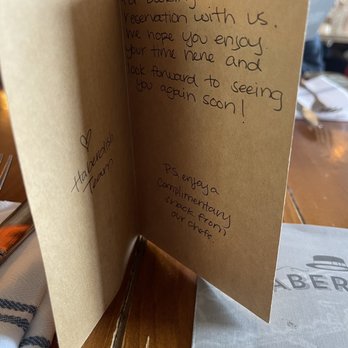 reservation with us.
We hope you enjoy
your time here and
look forward to seeing
you again soon!
♡
Haberdish
Team
P.S. enjoy a
complimentary
snack from
our chefs
ABER